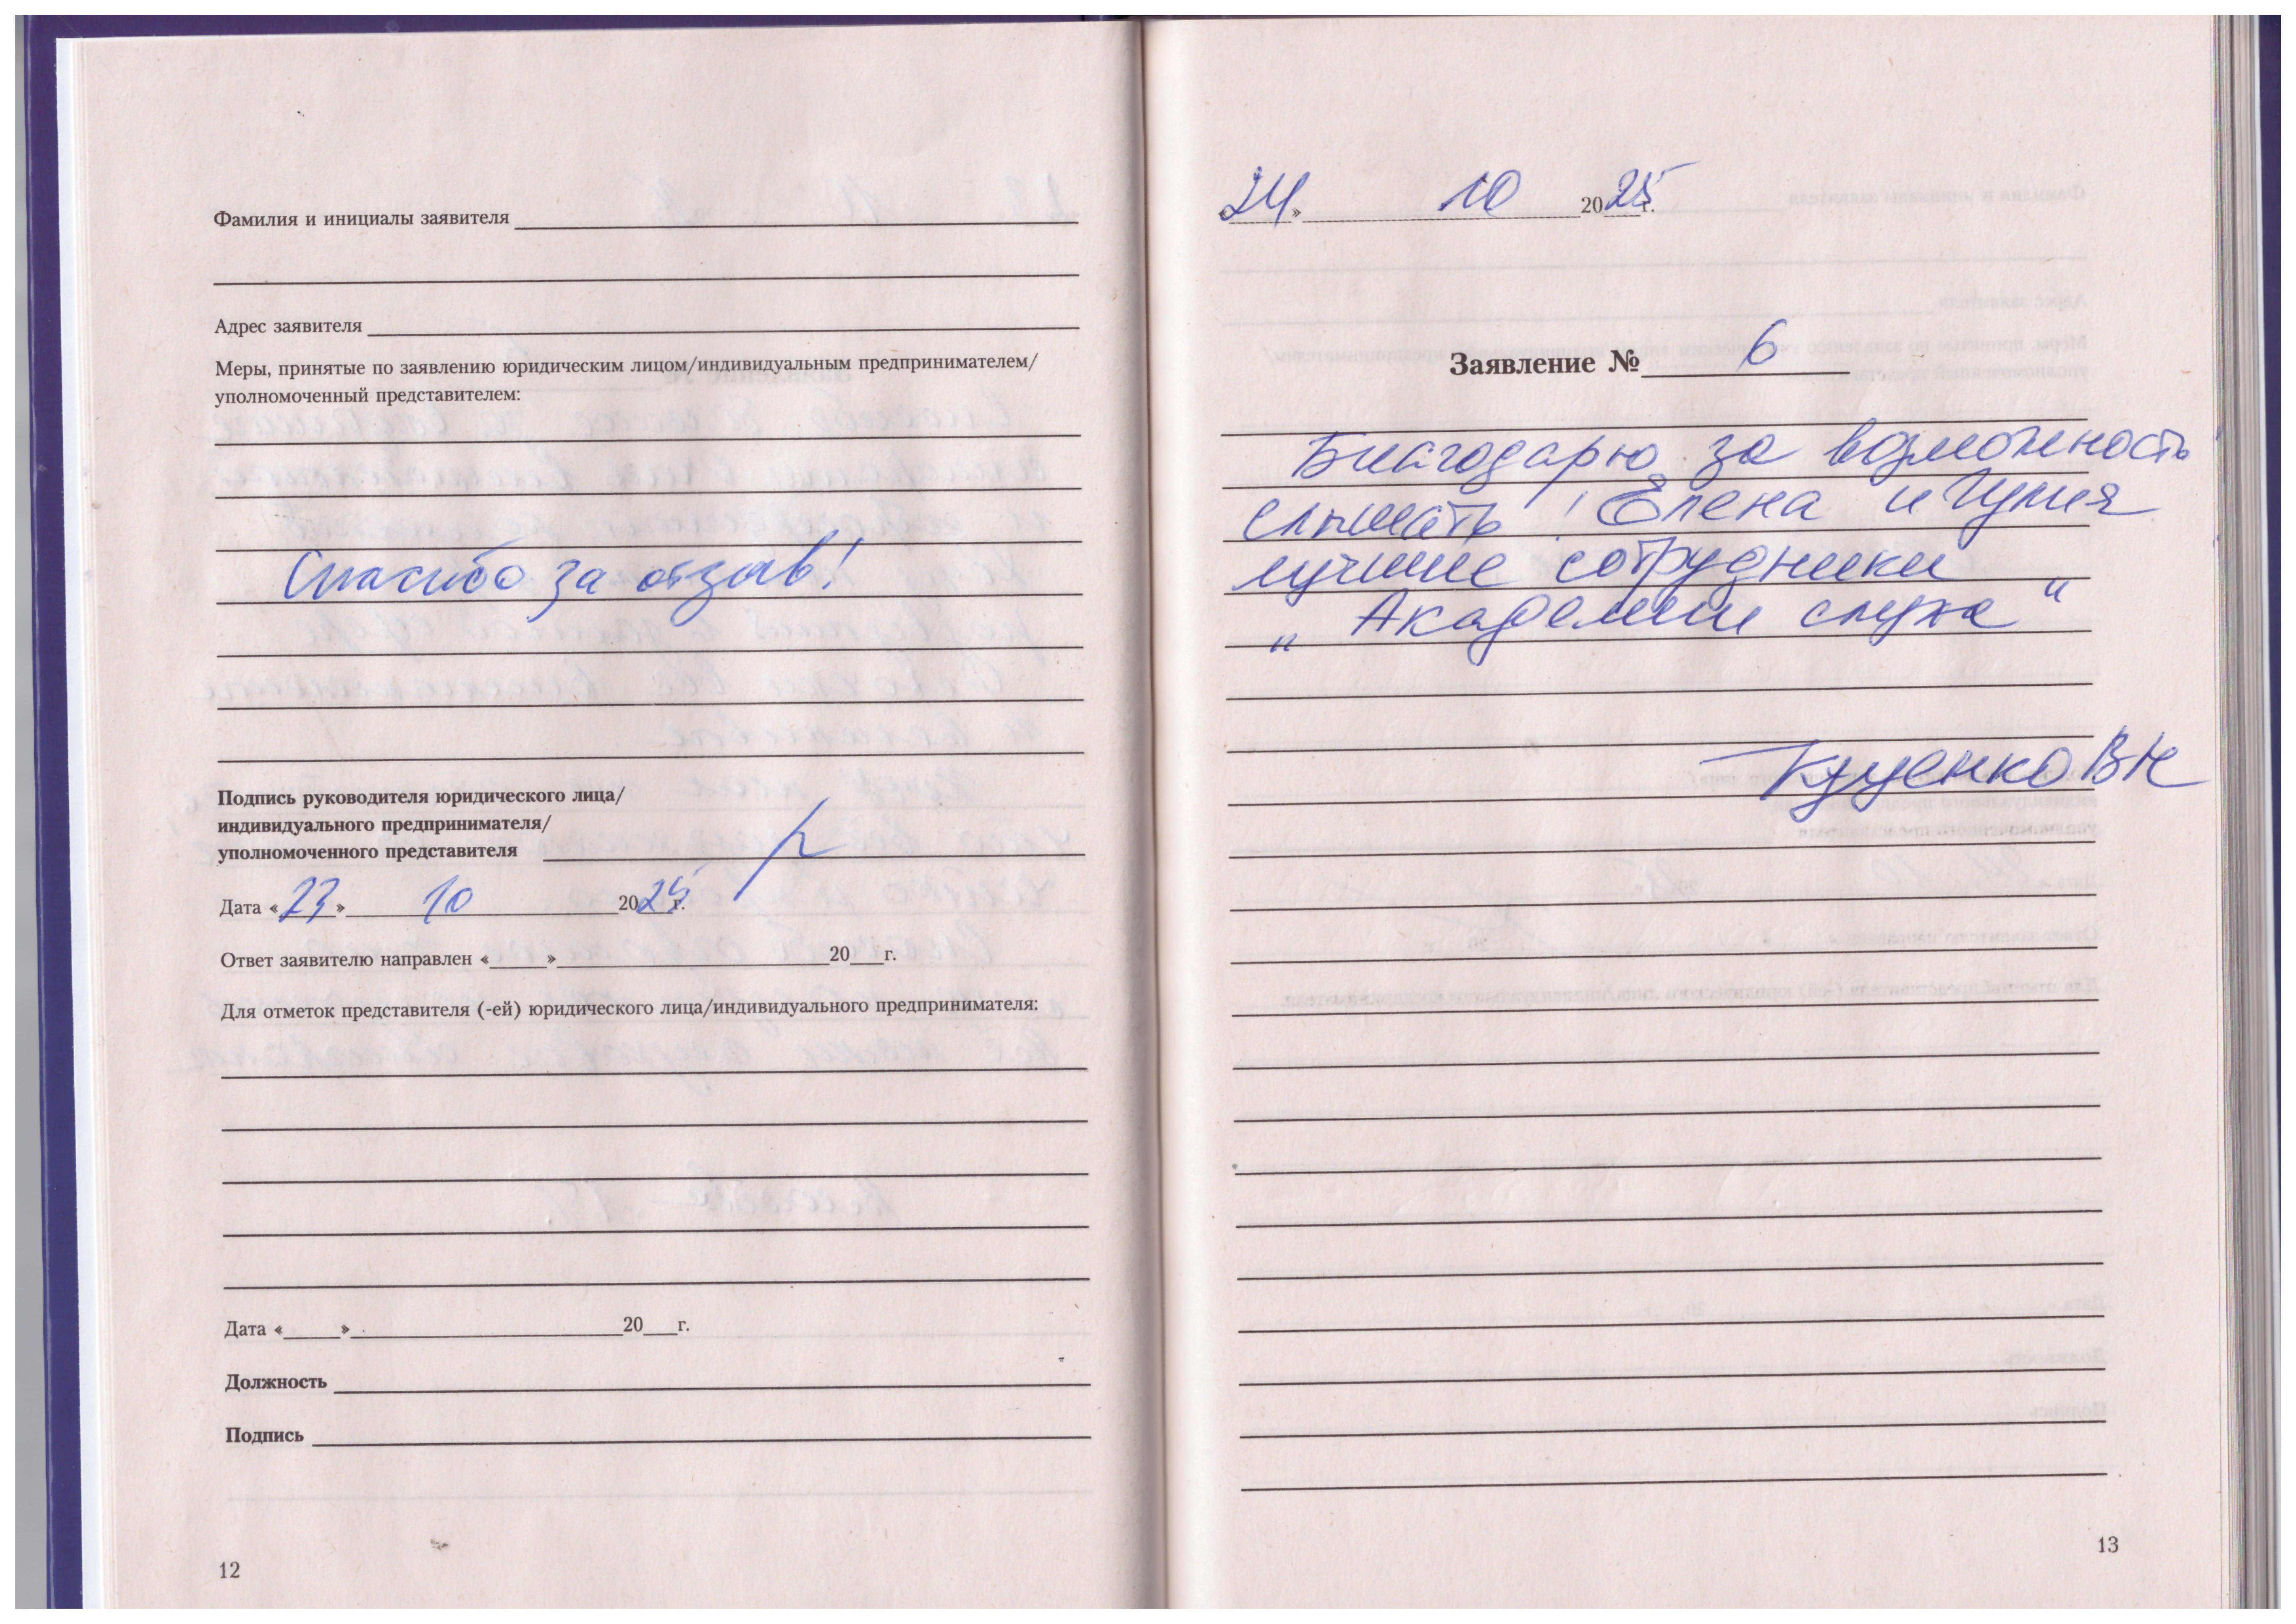 Фамилия и инициалы заявителя
Адрес заявителя
Меры, принятые по заявлению юридическим лицом/индивидуальным предпринимателем/
уполномоченный представителем:
Спасибо за отзыв!
Подпись руководителя юридического лица/
индивидуального предпринимателя/
уполномоченного представителя
Дата «23» 10 2025 г.
Ответ заявителю направлен «  »  20  г.
Для отметок представителя (-ей) юридического лица/индивидуального предпринимателя:
Дата «  »  20  г.
Должность
Подпись
12
«24» 10 2025 г.
Заявление № 6
Благодарю за возможность
слышать! Елена и Гулия
лучшие сотрудники
„Академии слуха“
Куценко ВН
13